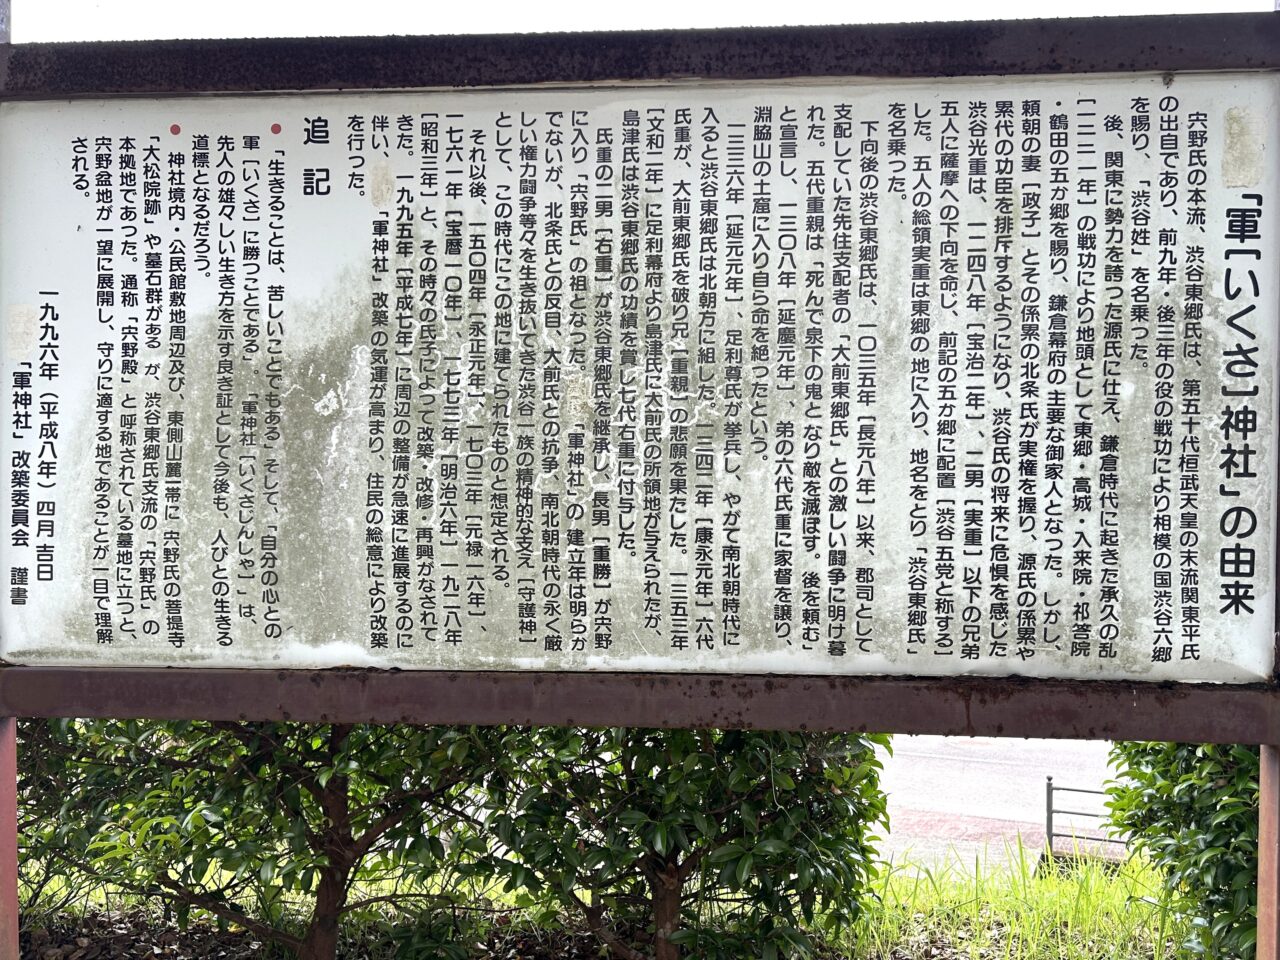 「軍［いくさ］神社」の由来
宍野氏の本流、渋谷東郷氏は、第五十代桓武天皇の末流関東平氏
の出自であり、前九年・後三年の役の戦功により相模の国渋谷六郷
を賜り、「渋谷姓」を名乗った。
後、関東に勢力を誇った源氏に仕え、鎌倉時代に起きた承久の乱
［一二二一年］の戦功により地頭として東郷・高城・入来院・祁答院
・鶴田の五か郷を賜り、鎌倉幕府の主要な御家人となった。しかし、
頼朝の妻［政子］とその係累の北条氏が実権を握り、源氏の係累や
累代の功臣を排斥するようになり、渋谷氏の将来に危惧を感じた
渋谷光重は、一二四八年［宝治二年］、二男［実重］以下の兄弟
五人に薩摩への下向を命じ、前記の五か郷に配置［渋谷五党と称する］
した。五人の総領実重は東郷の地に入り、地名をとり「渋谷東郷氏」
を名乗った。
下向後の渋谷東郷氏は、一〇三五年［長元八年］以来、郡司として
支配していた先住支配者の「大前東郷氏」との激しい闘争に明け暮
れた。五代重親は「死んで泉下の鬼となり敵を滅ぼす。後を頼む」
と宣言し、一三〇八年［延慶元年］、弟の六代氏重に家督を譲り、
淵脇山の土窟に入り自ら命を絶ったという。
一三三六年［延元元年］、足利尊氏が挙兵し、やがて南北朝時代に
入ると渋谷東郷氏は北朝方に組した。一三四二年［康永元年］六代
氏重が、大前東郷氏を破り兄［重親］の悲願を果たした。一三五三年
［文和二年］に足利幕府より島津氏に大前氏の所領地が与えられたが、
島津氏は渋谷東郷氏の功績を賞し七代右重に付与した。
氏重の二男［右重］が渋谷東郷氏を継承し、長男［重勝］が宍野
に入り「宍野氏」の祖となった。「軍神社」の建立年は明らか
でないが、北条氏との反目、大前氏との抗争、南北朝時代の永く厳
しい権力闘争等々を生き抜いてきた渋谷一族の精神的な支え［守護神］
として、この時代にこの地に建てられたものと想定される。
それ以後、一五〇四年［永正元年］、一七〇三年［元禄一六年］、
一七六一年［宝暦一〇年］、一七七三年［明治六年］、一九二八年
［昭和三年］と、その時々の氏子によって改築・改修・再興がなされて
きた。一九九五年［平成七年］に周辺の整備が急速に進展するのに
伴い、「軍神社」改築の気運が高まり、住民の総意により改築
を行った。
追記
●「生きることは、苦しいことでもある」そして、「自分の心との
軍［いくさ］に勝つことである」。「軍神社［いくさじんしゃ］」は、
先人の雄々しい生き方を示す良き証として今後も、人びとの生きる
道標となるだろう。
●神社境内・公民館敷地周辺及び、東側山麓一帯に宍野氏の菩提寺
「大松院跡」や墓石群がある が、渋谷東郷氏支流の「宍野氏」の
本拠地であった。通称「宍野殿」と呼称されている墓地に立つと、
宍野盆地が一望に展開し、守りに適する地であることが一目で理解
される。
一九九六年（平成八年）四月吉日
「軍神社」改築委員会 謹書